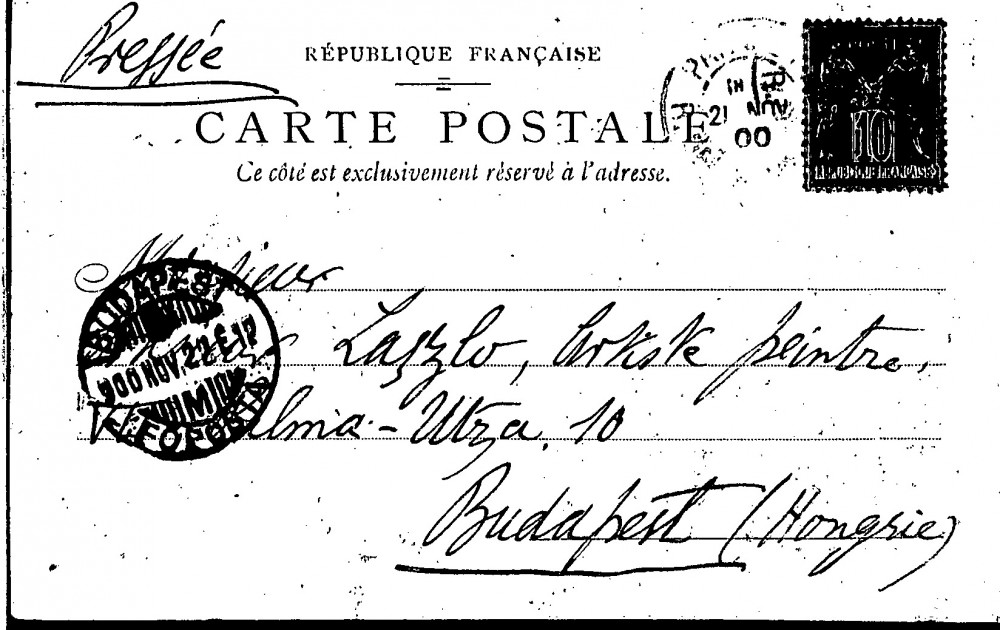 Pressée
RÉPUBLIQUE FRANÇAISE
CARTE POSTALE
Ce côté est exclusivement réservé à l'adresse.
21
NOV
00
10
RÉPUBLIQUE FRANÇAISE
Monsieur
Laszlo, Artiste peintre,
Utza, 10
Budapest (Hongrie)
BUDAPEST
900 NOV. 22 E 12
M